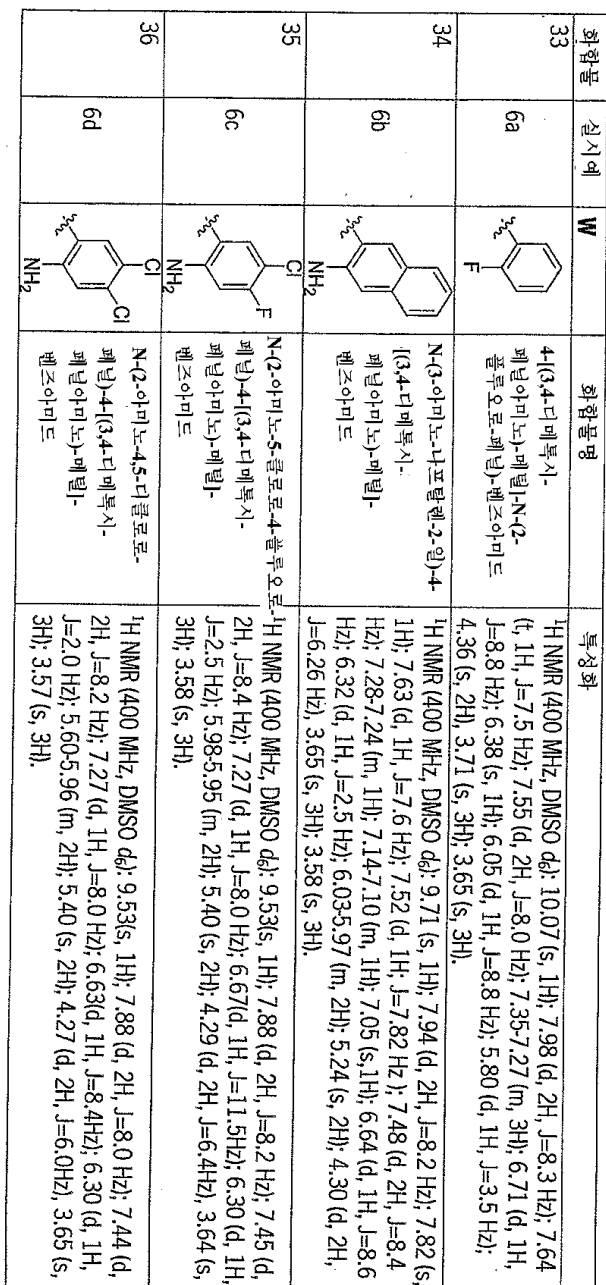 화합물 실시예 W 화합물명 특성화
33 6a
F
4-[(3,4-디메톡시-
페닐아미노)-메틸]-N-(2-
플루오로-페닐)-벤즈아미드
¹H NMR (400 MHz, DMSO d₆): 10.07 (s, 1H); 7.98 (d, 2H, J=8.3 Hz); 7.64
(t, 1H, J=7.5 Hz); 7.55 (d, 2H, J=8.0 Hz); 7.35-7.27 (m, 3H); 6.71 (d, 1H,
J=8.8 Hz); 6.38 (s, 1H); 6.05 (d, 1H, J=8.8 Hz); 5.80 (d, 1H, J=3.5 Hz);
4.36 (s, 2H), 3.71 (s, 3H); 3.65 (s, 3H).
34 6b
NH₂
N-(3-아미노-나프탈렌-2-일)-4-
[(3,4-디메톡시-
페닐아미노)-메틸]-
벤즈아미드
¹H NMR (400 MHz, DMSO d₆): 9.71 (s, 1H); 7.94 (d, 2H, J=8.2 Hz); 7.82 (s,
1H); 7.63 (d, 1H, J=7.6 Hz); 7.52 (d, 1H, J=7.82 Hz ); 7.48 (d, 2H, J=8.4
Hz); 7.28-7.24 (m, 1H); 7.14-7.10 (m, 1H); 7.05 (s,1H); 6.64 (d, 1H, J=8.6
Hz); 6.32 (d, 1H, J=2.5 Hz); 6.03-5.97 (m, 2H); 5.24 (s, 2H); 4.30 (d, 2H,
J=6.26 Hz), 3.65 (s, 3H); 3.58 (s, 3H).
35 6c
Cl
F
NH₂
N-(2-아미노-5-클로로-4-플루오로-
페닐)-4-[(3,4-디메톡시-
페닐아미노)-메틸]-
벤즈아미드
¹H NMR (400 MHz, DMSO d₆): 9.53(s, 1H); 7.88 (d, 2H, J=8.2 Hz); 7.45 (d,
2H, J=8.4 Hz); 7.27 (d, 1H, J=8.0 Hz); 6.67(d, 1H, J=11.5Hz); 6.30 (d, 1H,
J=2.5 Hz); 5.98-5.95 (m, 2H); 5.40 (s, 2H); 4.29 (d, 2H, J=6.4Hz), 3.64 (s,
3H); 3.58 (s, 3H).
36 6d
Cl
Cl
NH₂
N-(2-아미노-4,5-디클로로-
페닐)-4-[(3,4-디메톡시-
페닐아미노)-메틸]-
벤즈아미드
¹H NMR (400 MHz, DMSO d₆): 9.53(s, 1H); 7.88 (d, 2H, J=8.0 Hz); 7.44 (d,
2H, J=8.2 Hz); 7.27 (d, 1H, J=8.0 Hz); 6.63(d, 1H, J=8.4Hz); 6.30 (d, 1H,
J=2.0 Hz); 5.60-5.96 (m, 2H); 5.40 (s, 2H); 4.27 (d, 2H, J=6.0Hz), 3.65 (s,
3H); 3.57 (s, 3H).